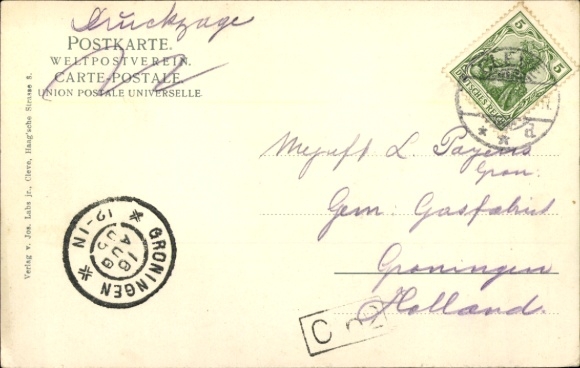 Druckzage
POSTKARTE.
WELTPOSTVEREIN.
CARTE-POSTALE.
UNION POSTALE UNIVERSELLE.
5 5
DEUTSCHES REICH
* * d
L.
Gem. Gasfabriek
Groningen
Holland.
GRONINGEN
16
AUG
12-1N
C
Verlag v. Jos. Labs jr., Cleve, Haag'sche Strasse 8.